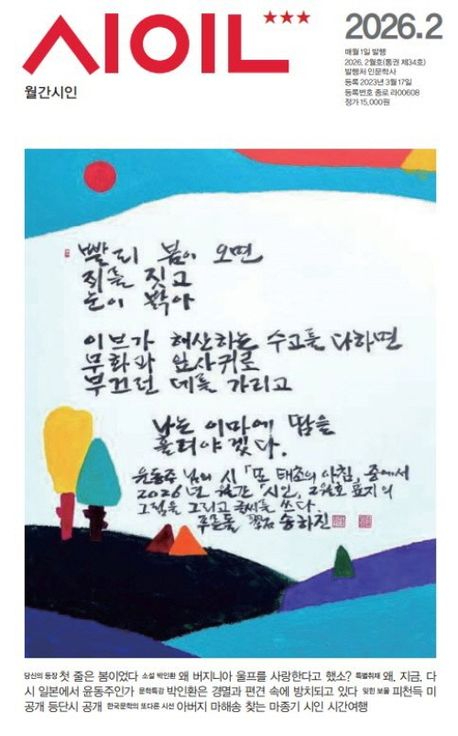 시인
★★★
월간시인
2026.2
매월 1일 발행
2026. 2월호(통권 제34호)
발행처 인문학사
등록 2023년 3월 17일
등록번호 종로 라00608
정가 15,000원
빨리 봄이 오면
죄를 짓고
눈이 밝아
이브가 해산하는 수고를 다하면
무화과 잎사귀로
부끄런 데를 가리고
나는 이마에 땀을
흘려야겠다.
윤동주 님의 시 「또 태초의 아침」 중에서
2026년 월간 '시인' 2월호 표지의
그림을 그리고 글씨를 쓰다.
푸른돌 송하진
당신의 등장 첫 줄은 봄이었다 소설 박인환 왜 버지니아 울프를 사랑한다고 했소? 특별취재 왜, 지금, 다
시 일본에서 윤동주인가 문학특강 박인환은 경멸과 편견 속에 방치되고 있다 잊힌 보물 피천득 미
공개 등단시 공개 한국문학의 또다른 시선 아버지 마해송 찾는 마종기 시인 시간여행